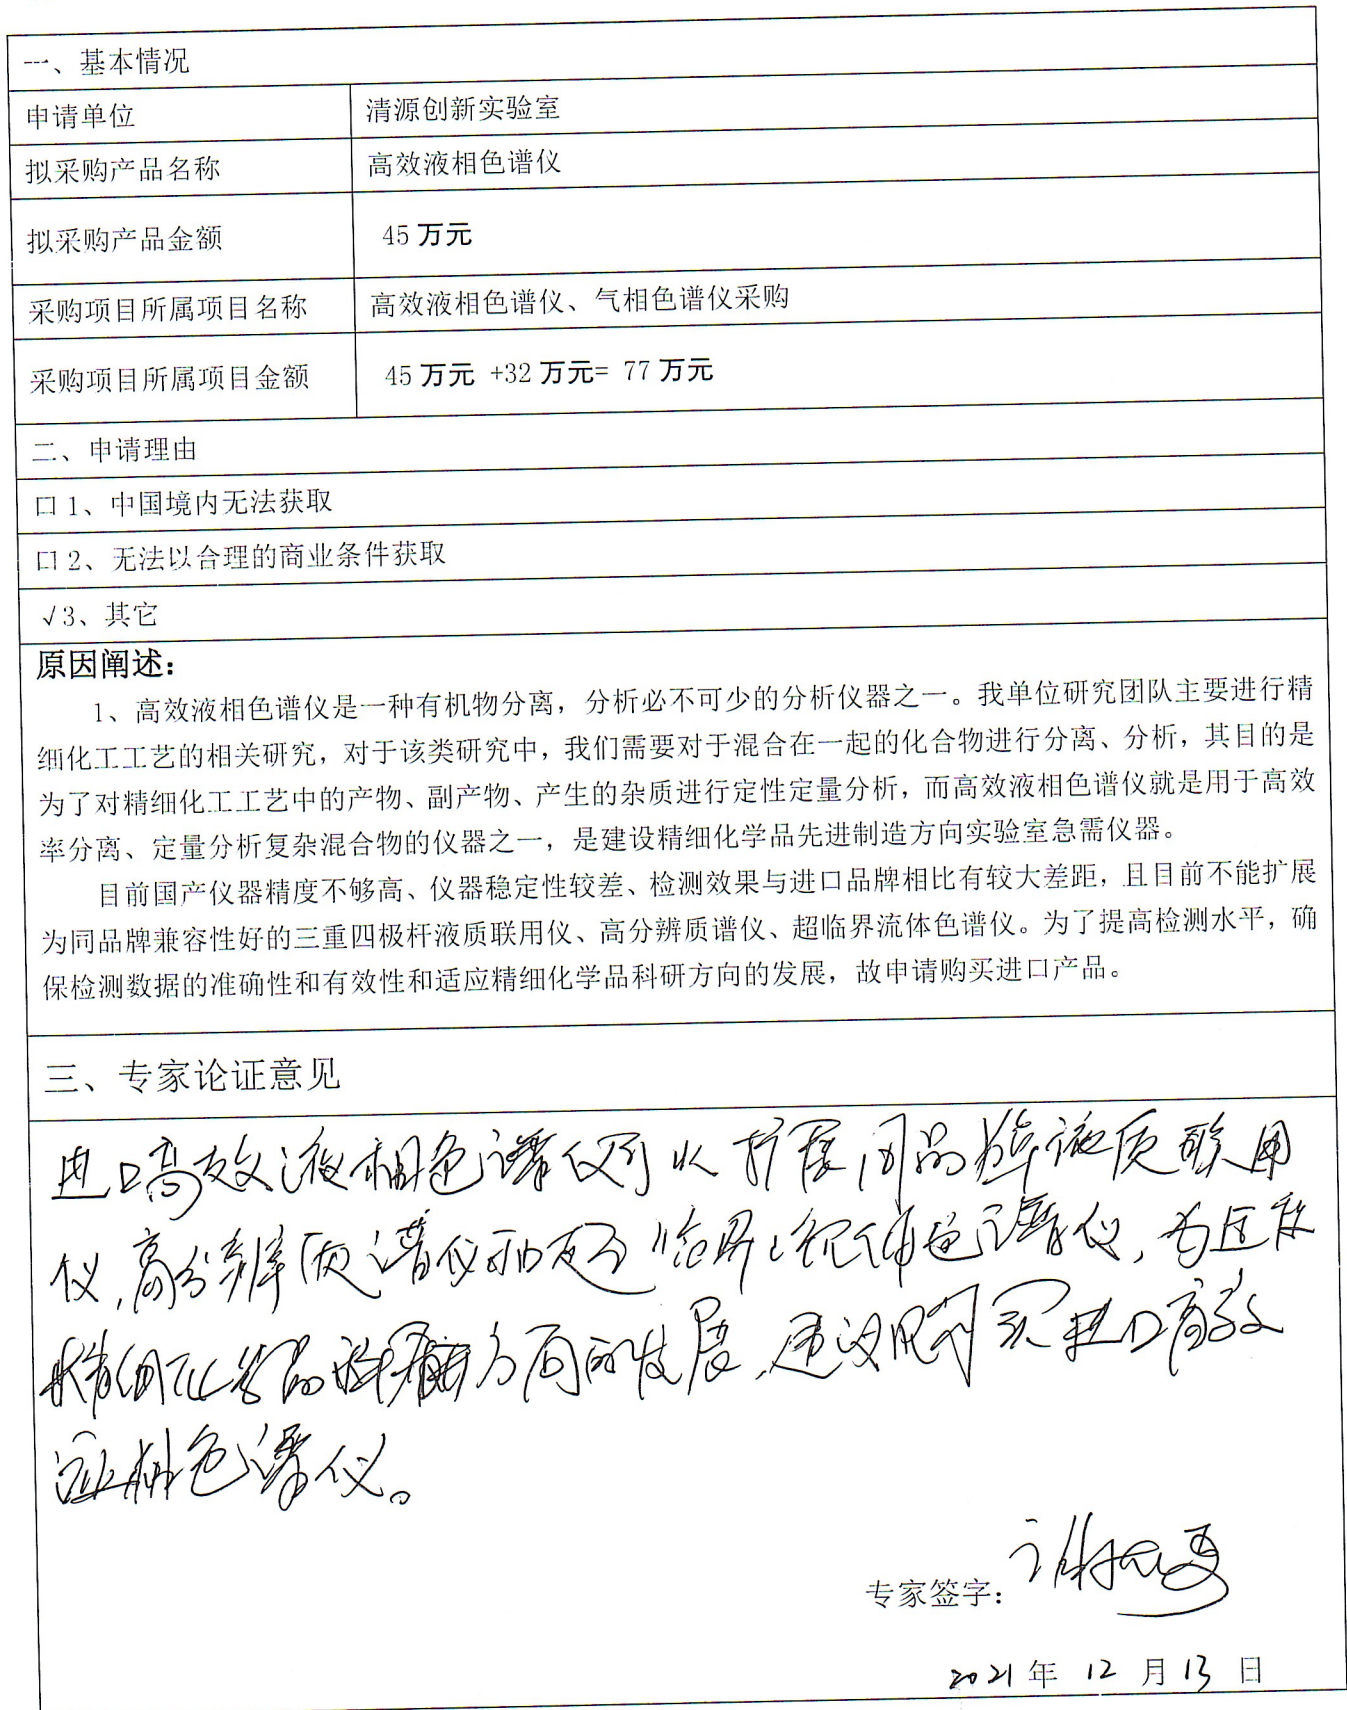 一、基本情况
申请单位 清源创新实验室
拟采购产品名称 高效液相色谱仪
拟采购产品金额 45 万元
采购项目所属项目名称 高效液相色谱仪、气相色谱仪采购
采购项目所属项目金额 45 万元 +32 万元= 77 万元
二、申请理由
口 1、中国境内无法获取
口 2、无法以合理的商业条件获取
√3、其它
原因阐述：
1、高效液相色谱仪是一种有机物分离，分析必不可少的分析仪器之一。我单位研究团队主要进行精
细化工工艺的相关研究，对于该类研究中，我们需要对于混合在一起的化合物进行分离、分析，其目的是
为了对精细化工工艺中的产物、副产物、产生的杂质进行定性定量分析，而高效液相色谱仪就是用于高效
率分离、定量分析复杂混合物的仪器之一，是建设精细化学品先进制造方向实验室急需仪器。
目前国产仪器精度不够高、仪器稳定性较差、检测效果与进口品牌相比有较大差距，且目前不能扩展
为同品牌兼容性好的三重四极杆液质联用仪、高分辨质谱仪、超临界流体色谱仪。为了提高检测水平，确
保检测数据的准确性和有效性和适应精细化学品科研方向的发展，故申请购买进口产品。
三、专家论证意见
进口高效液相色谱仪可以扩展同品牌液质联用
仪，高分辨质谱仪和超临界流体色谱仪，为适应
精细化学品科研方向的发展，建议购买进口高效
液相色谱仪。
专家签字：
2021 年 12 月 13 日